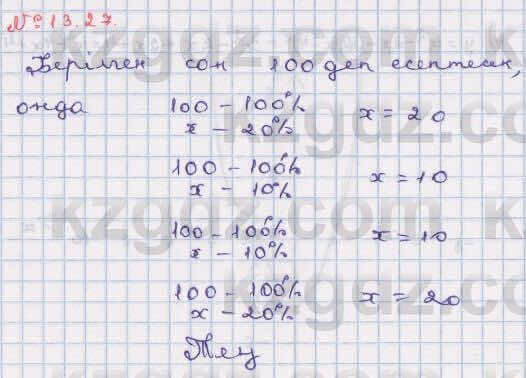 №13.27.
Берілген сон 100 деп есептесек,
онда 100 – 100% x = 20
x – 20%
100 – 100% x = 10
x – 10%
100 – 100% x = 10
x – 10%
100 – 100% x = 20
x – 20%
Тең
kzgdz.com
kzgdz.com
kzgdz.com